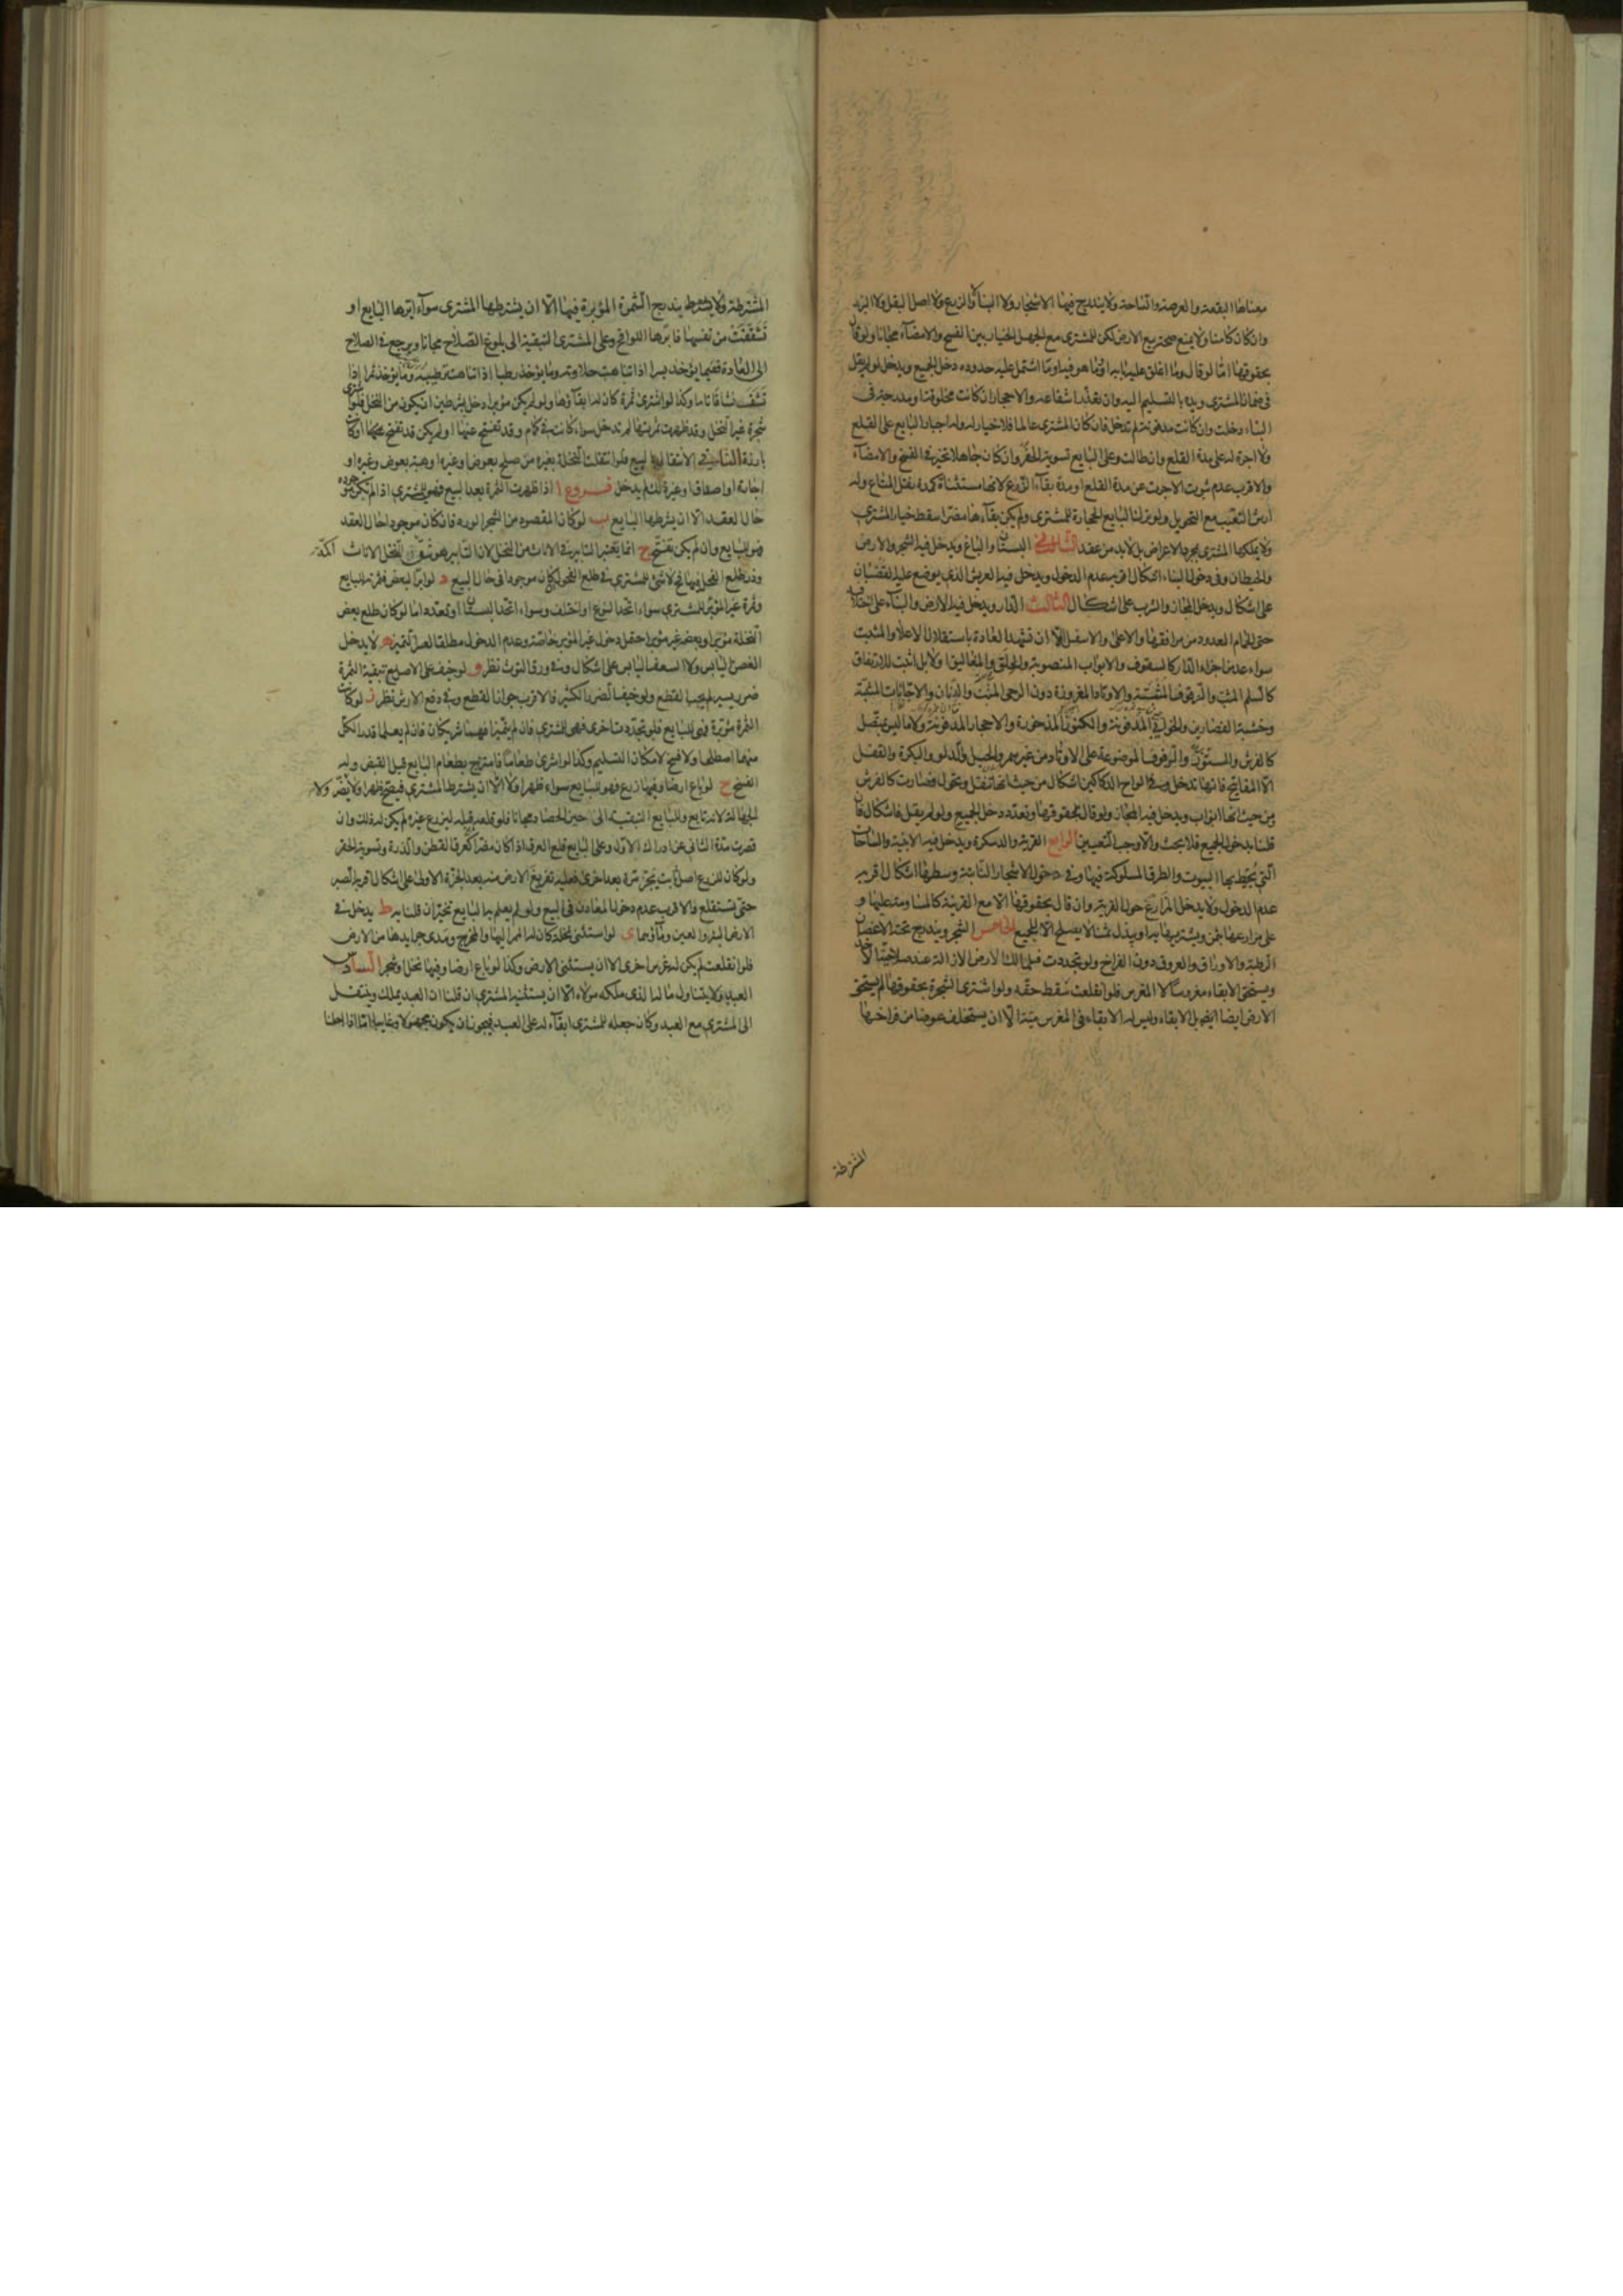 معناها البقعة والعرصة والساحة ولا يندرج فيها الاشجار ولا البناء ولا الزرع ولا اصل البقل ولا البذر
وان كان كامنا ولا يمنع صحة بيع الارض لكن للمشتري مع الجهل الخيار بين الفسخ والامضاء مجانا ولو قال
بحقوقها اما لو قال وما اغلق عليه بابه او ما هو فيها وما اشتمل عليه حدوده دخل الجميع ويدخل لو لم يقل
في ضمان المشتري ويده بالتسليم اليه وان تعذر انتفاعه والاحجار ان كانت مخلوقة او مدرجة في
البناء دخلت وان كانت مدفونة لم تدخل فان كان المشتري عالما فلا خيار له وله اجبار البايع على القلع
ولا اجرة له على مدة القلع وان طالت وعلى البايع تسوية الحفر وان كان جاهلا تخير في الفسخ والامضاء
والاقرب عدم ثبوت الاجرة عن مدة القلع او مدة بقاء الزرع لانها مستثناة كمدة نقل المتاع وله
ارش التعيب مع التحويل ولو ترك البايع الحجارة للمشتري ولم يكن بقاءها مضرا سقط خيار المشتري
ولا يملكها المشتري بمجرد الاعراض بل لابد من عقد الثاني البستان والباغ ويدخل فيه الشجر والارض
والحيطان وفي دخول البناء اشكال اقربه عدم الدخول ويدخل فيه العريش الذي يوضع عليه القضبان
على اشكال ويدخل المجاز والشرب على اشكال الثالث الدار ويدخل فيه الارض والبناء على اختلافه
حتى الحمام المعدود من مرافقها والاعلى والاسفل الا ان تشهد العادة باستقلال الاعلى والمثبت
سواء عد من اجزاء الدار كالسقوف والابواب المنصوبة والحلق والمغاليق او لا بل اثبت للارتفاق
كالسلم المثبت والرفوف المثبتة والاوتاد المغروزة دون الرحى المثبت والدنان والاجانات المثبتة
وخشبة القصارين والخوابي المدفونة والكنوز المذخورة والاحجار المدفونة ولا ما ليس بمتصل
كالفرش والستور والرفوف الموضوعة على الاوتاد من غير سمر والحبل والدلو والبكرة والقفل
الا المفاتيح فانها تدخل وفي الواح الدكاكين اشكال من حيث انها تنقل وتحول فصارت كالفرش
ومن حيث انها ابواب ويدخل فيه المجاز ولو قال بحقوقها وتعدد دخل الجميع ولو لم يقل فاشكال فان
قلنا بدخول الجميع فلا بحث والا وجب التعيين الرابع القرية والدسكرة ويدخل فيه الابنية والساحات
التي يحيط بها البيوت والطرق المسلوكة فيها وفي دخول الاشجار النابتة وسطها اشكال اقربه
عدم الدخول ولا يدخل المزارع حول القرية وان قال بحقوقها الا مع القرينة كالمساومة عليها و
على مزارعها بثمن ويشتريها به او يبذل ثمنا لا يصلح الا للجميع الخامس الشجر ويندرج تحته الاغصان
الرطبة والاوراق والعروق دون الفراخ ولو تجددت فلمالك الارض الازالة عند صلاحية الاخذ
ويستحق الابقاء مغروسا لا المغرس فلو انقلعت سقط حقه ولو اشترى الشجرة بحقوقها لم يستحق
الارض ايضا ايضا بل الابقاء وليس له الابقاء في المغرس ميتة الا ان يستخلف عوضا من فراخها
المشترطة
المشترطة ولا يشترط يندرج الثمرة المؤبرة فيها الا ان يشترطها المشتري سواء ابرها البايع او
تشققت من نفسها فابرها اللواقح وعلى المشتري التبقية الى بلوغ الصلاح مجانا ويرجع في الصلاح
الى العادة ففيما يؤخذ بسرا اذا تناهت حلاوته وما يؤخذ رطبا اذا تناهت ترطيبه وما يؤخذ تمرا اذا
نشف نشافا تاما وكذا لو اشترى ثمرة كان له ابقاؤها ولو لم يكن مؤبرا دخل بشرطين ان يكون من النخل فلو اشترى
شجرة غير النخل وقد ظهرت ثمرتها لم تدخل سواء كانت في كمام وقد تفتح عنها او لم يكن قد تفتح عنها او كانت
بارزة الثاني الانتقال بالبيع فلو انتقلت النخلة بغيره من صلح بعوض او غيره او هبة بعوض وغيره او
اجارة او اصداق او غير ذلك لم يدخل فروع ا اذا ظهرت الثمرة بعد البيع فهو للمشتري اذا لم يكن موجوده
حال العقد الا ان يشرطها البايع ب لو كان المقصود من الشجر الورد فان كان موجودا حال العقد
فهو للبايع وان لم يكن تفتح ج انما يعتبر التابير في الاناث من النخل لان التابير هو شق النخل الاناث
وذر طلع الفحل فيها فلا شيء للمشتري في طلع الفحل ان كان موجودا في حال البيع د لو ابر البعض فثمرته للبايع
وثمرة غير المؤبر للمشتري سواء اتحد النوع او اختلف وسواء اتحد البستان او تعدد اما لو كان طلع بعض
النخلة مؤبرا وبعضه غير مؤبر احتمل دخول غير المؤبر خاصة وعدم الدخول مطلقا لعسر التمييز ه لا يدخل
الغصن اليابس ولا السعف اليابس على اشكال وفي ورق التوت نظر و لو خيف على الاصل مع تبقية الثمرة
ضرر يسير لم يجب القطع ولو خيف الضرر الكثير فالاقرب جواز القطع وفي دفع الارش نظر ز لو كانت
الثمرة مؤبرة فهي للبايع فلو تجددت اخرى فهي للمشتري فان لم يتميزا فهما شريكان فان لم يعلما قدر الكل
منهما اصطلحا ولا فسخ لامكان التسليم وكذا لو اشترى طعاما فامتزج بطعام البايع قبل القبض وله
الفسخ ح لو باع ارضا وفيها زرع فهو للبايع سواء ظهر او لا الا ان يشترطه المشتري فيصح ظهر او لا يضر ولا
الجهالة لانه تابع وللبايع التبقية الى حين الحصاد مجانا فلو قلعه قبله ليزرع غيره لم يكن له ذلك وان
قصرت مدة الثاني عن ادراك الاول وعلى البايع قلع العرق اذا كان مضرا كعرق القطن والذرة وتسوية الحفر
ولو كان للزرع اصل ثابت يجز مرة بعد اخرى فعليه تفريغ الارض منه بعد الجزة الاولى على اشكال اقربه الصبر
حتى يستقلع والاقرب عدم دخول المعادن في البيع ولو لم يعلم به البايع تخير ان قلنا به ط يدخل في
الارض البئر والعين وماؤهما ي لو استثنى نخلة كان له الممر اليها والمخرج ومدى جرايدها من الارض
فلو انقلعت لم يكن له غرس اخرى الا ان يستثنى الارض وكذا لو باع ارضا وفيها نخل او شجر السادس
العبد ولا يتناول ماله الذي ملكه مولاه الا ان يستثنيه المشتري ان قلنا ان العبد يملك وينتقل
الى المشتري مع العبد وكان جعله للمشتري ابقاء له على العبد فيجوز ان يكون مجهولا وغايبا اما اذا احلنا